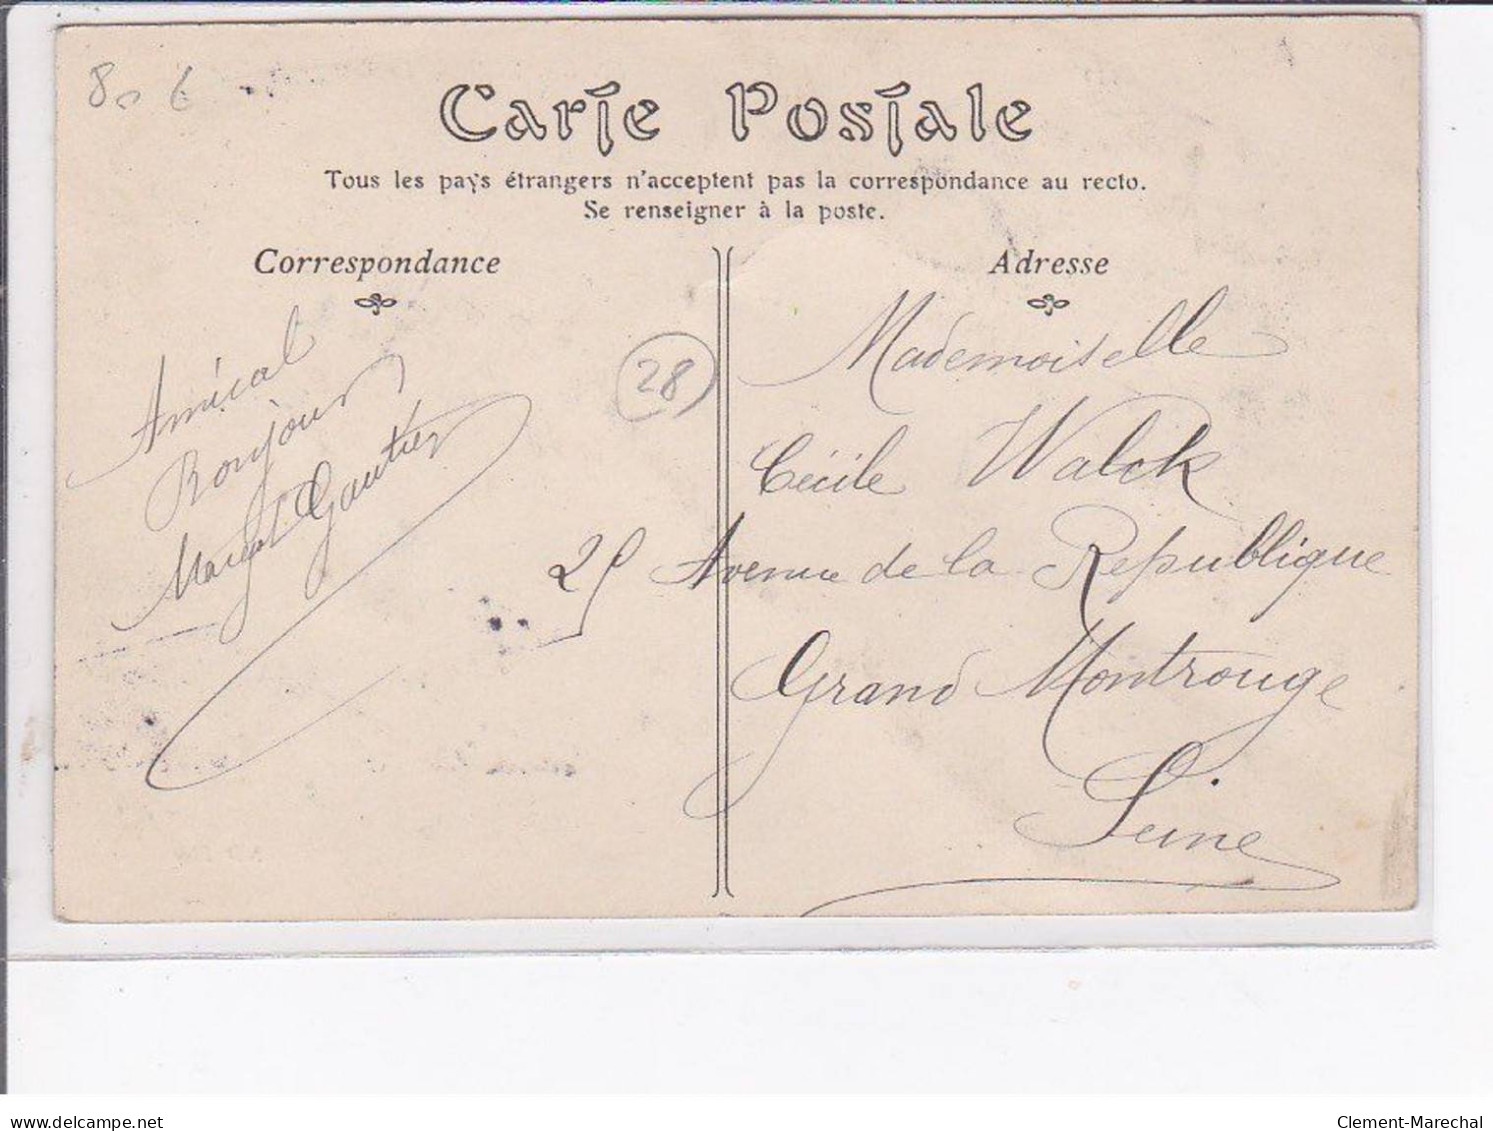 Carte Postale
Tous les pays étrangers n'acceptent pas la correspondance au recto.
Se renseigner à la poste.
Correspondance
Amical
Bonjour
Margot Gautier
28
Adresse
Mademoiselle
Cécile Walck
25 Avenue de la Republique
Grand Montrouge
Seine
www.delcampe.net
Clement-Marechal